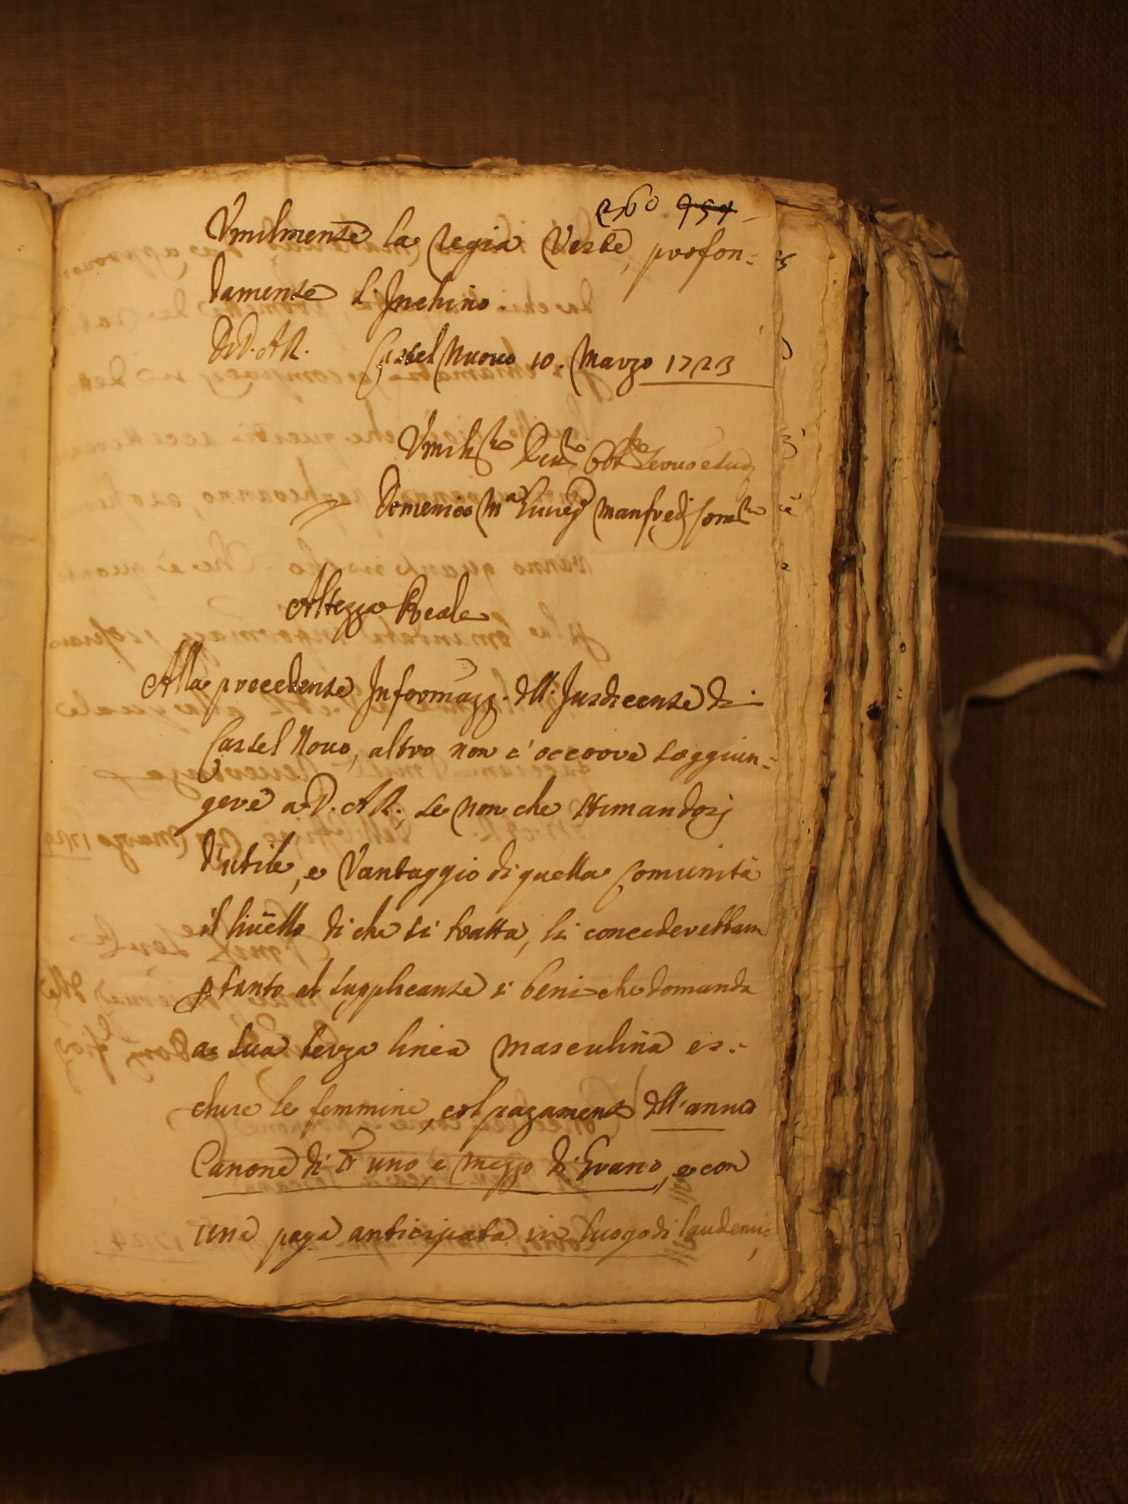 260 954
Vmilmente la Regia Veste, profon=
damente L'Inchino
Di V. A. R. Castel Nuovo 10. Marzo 1723
Vmil.mo Deu.mo Obb.mo Seruo e Sud.
Domenico M.a Manfredi
Altezza Reale
Alla precedente Informaz. dell'Jusdicente di
Castel Nouo, altro non c'occorre soggiun=
gere a V. A. R., se non che stimandosi
d'utile, e Vantaggio di quella Comunità
il liuello di che si tratta, si concederebbam
p tanto al supplicante i beni che domanda
a sua terza linea masculina es=
cluse le femmine, col pagamento dell'annuo
Canone di uno, e mezzo di Grano, e con
una paga anticipata in luogo di laudemio,